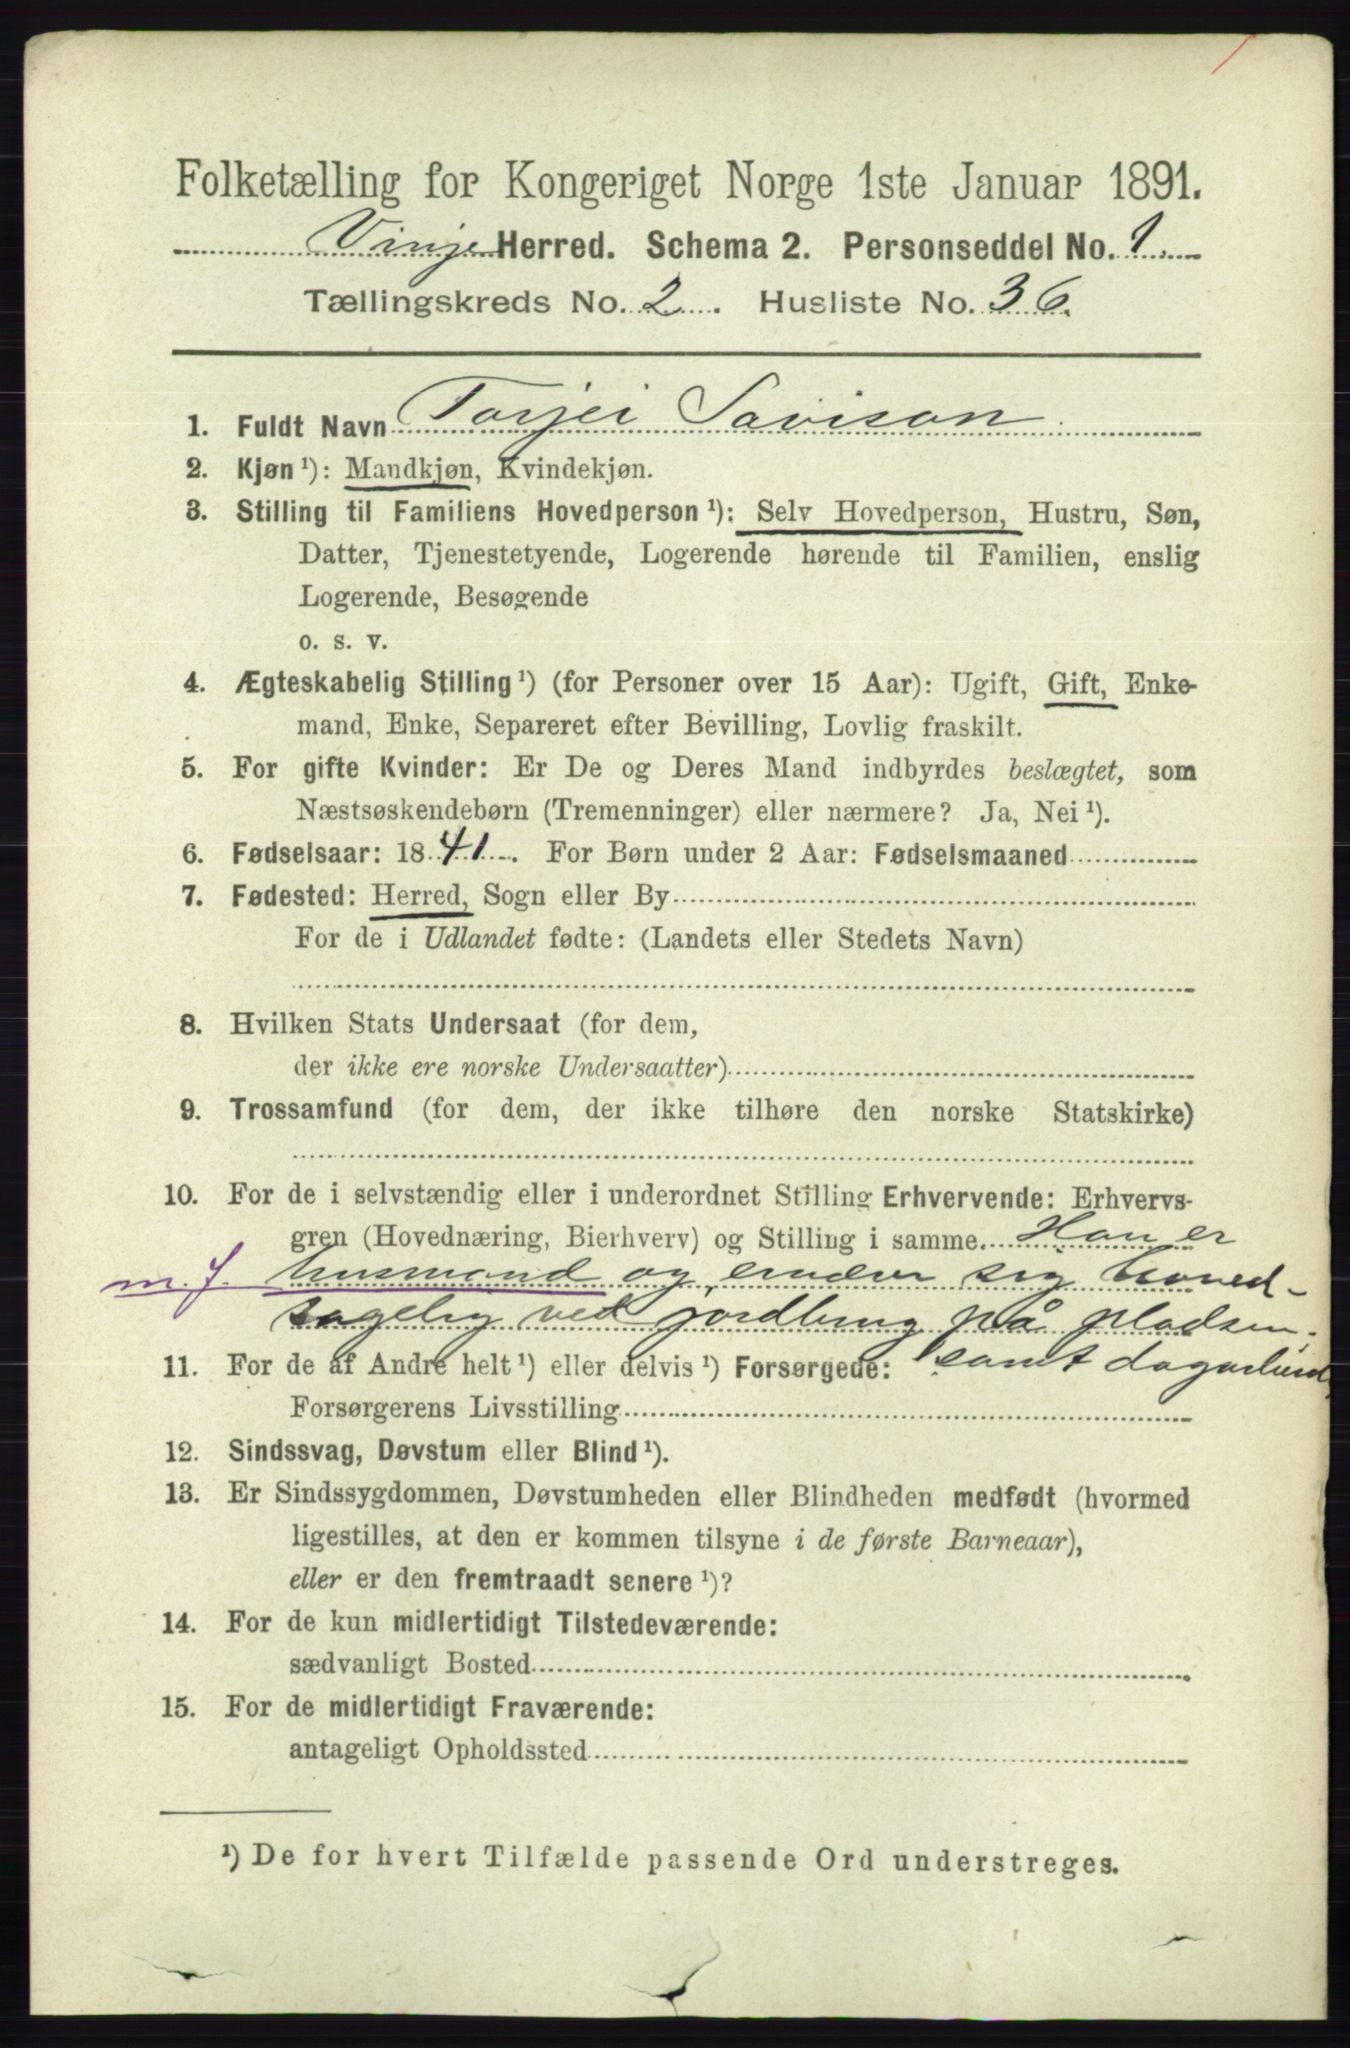 Folketælling for Kongeriget Norge 1ste Januar 1891.
Vinje Herred. Schema 2. Personseddel No. 1.
Tællingskreds No. 2. Husliste No. 36.
1. Fuldt Navn Torjei Sovison
2. Kjøn ¹): Mandkjøn, Kvindekjøn.
3. Stilling til Familiens Hovedperson ¹): Selv Hovedperson, Hustru, Søn,
Datter, Tjenestetyende, Logerende hørende til Familien, enslig
Logerende, Besøgende
o. s. v.
4. Ægteskabelig Stilling ¹) (for Personer over 15 Aar): Ugift, Gift, Enke-
mand, Enke, Separeret efter Bevilling, Lovlig fraskilt.
5. For gifte Kvinder: Er De og Deres Mand indbyrdes beslægtet, som
Næstsøskendebørn (Tremenninger) eller nærmere? Ja, Nei ¹).
6. Fødselsaar: 1841. For Børn under 2 Aar: Fødselsmaaned
7. Fødested: Herred, Sogn eller By
For de i Udlandet fødte: (Landets eller Stedets Navn)
8. Hvilken Stats Undersaat (for dem,
der ikke ere norske Undersaatter)
9. Trossamfund (for dem, der ikke tilhøre den norske Statskirke)
10. For de i selvstændig eller i underordnet Stilling Erhvervende: Erhvervs-
gren (Hovednæring, Bierhverv) og Stilling i samme. Han er
m. f. husmand og ernærer sig hoved-
sagelig ved jordbrug på pladsen.
11. For de af Andre helt ¹) eller delvis ¹) Forsørgede: samt dagarbeid
Forsørgerens Livsstilling
12. Sindssvag, Døvstum eller Blind ¹).
13. Er Sindssygdommen, Døvstumheden eller Blindheden medfødt (hvormed
ligestilles, at den er kommen tilsyne i de første Barneaar),
eller er den fremtraadt senere ¹)?
14. For de kun midlertidigt Tilstedeværende:
sædvanligt Bosted
15. For de midlertidigt Fraværende:
antageligt Opholdssted
¹) De for hvert Tilfælde passende Ord understreges.